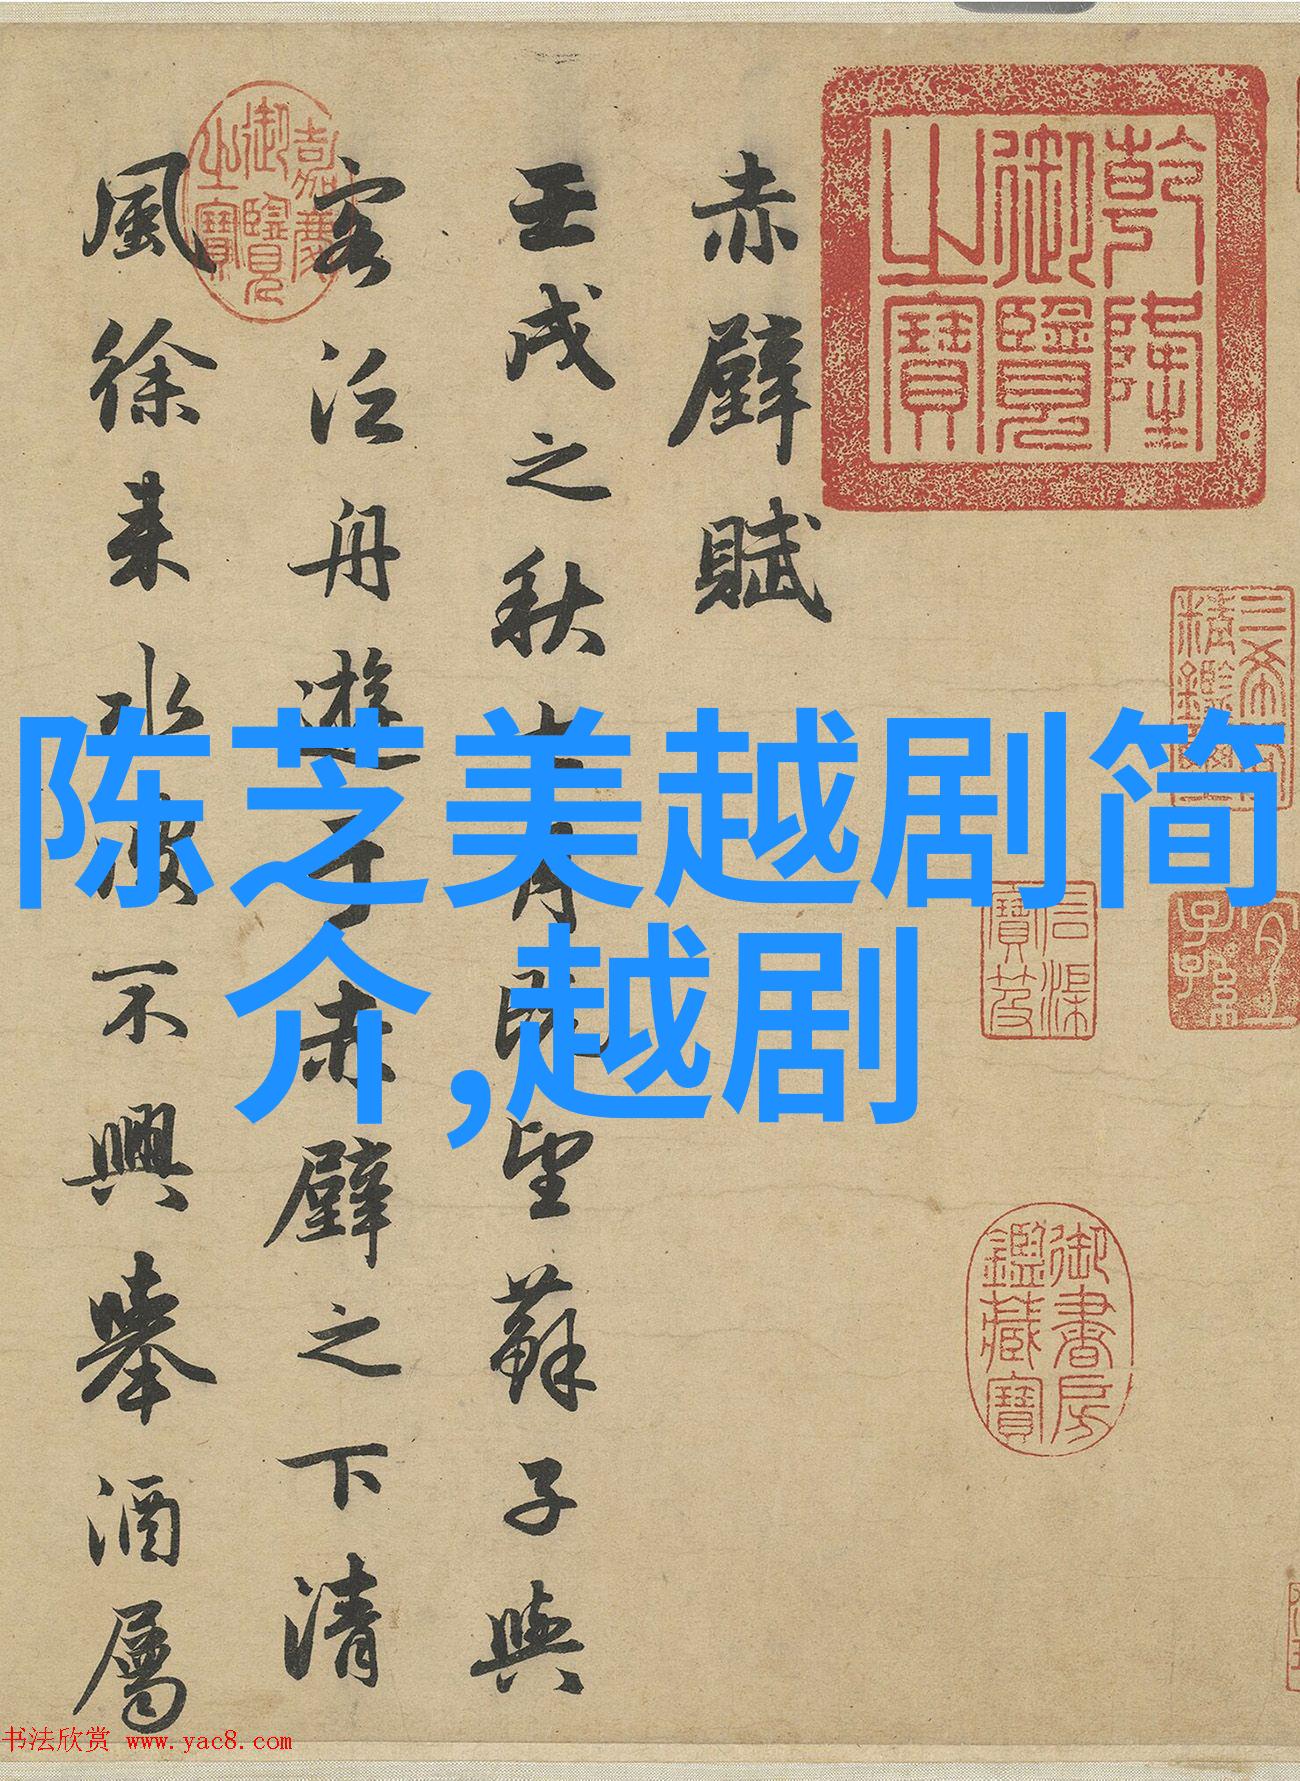 陈芝美越剧简
介,越剧
乾隆御覽之寶
三希堂精鑑璽
宜子孫
石渠寶笈
御書房鑑藏寶
赤壁賦
壬戌之秋七月既望蘇子與
客泛舟遊于赤壁之下清
風徐來水波不興舉酒屬
嘉慶御覽之寶
书法欣赏 www.yac8.com